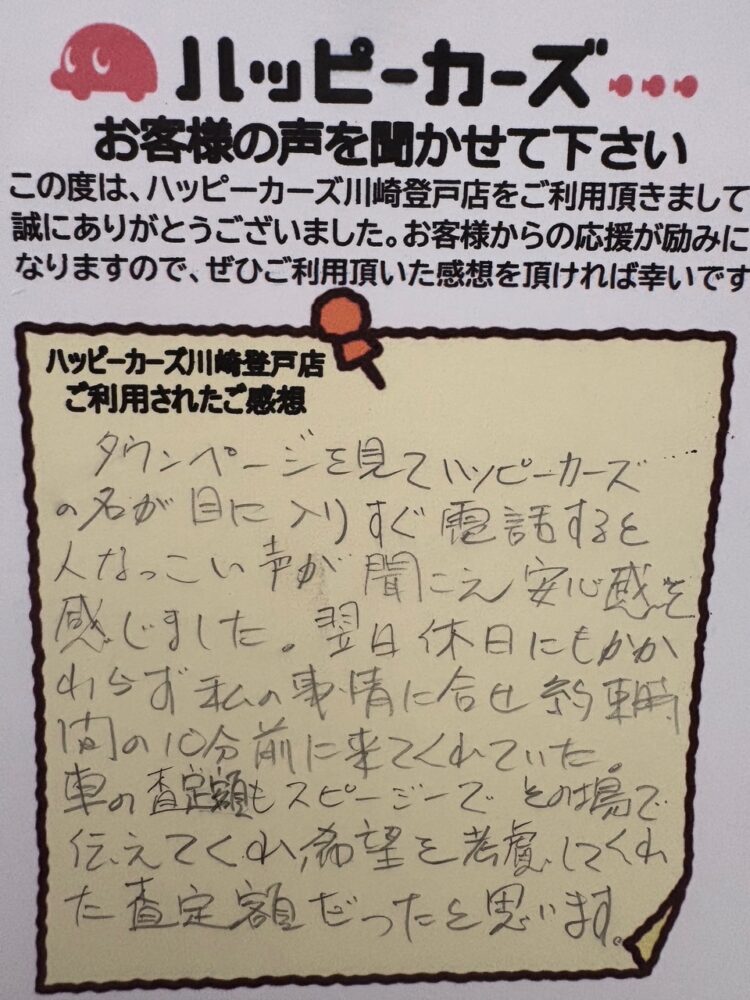 ハッピーカーズ
お客様の声を聞かせて下さい
この度は、ハッピーカーズ川崎登戸店をご利用頂きまして
誠にありがとうございました。お客様からの応援が励みに
なりますので、ぜひご利用頂いた感想を頂ければ幸いです
ハッピーカーズ川崎登戸店
ご利用されたご感想
タウンページを見てハッピーカーズ
の名が目に入りすぐ電話すると
人なっこい声が聞こえ安心感を
感じました。翌日休日にもかか
わらず私の事情に合せ約束時
間の10分前に来てくれていた。
車の査定額もスピージーでその場で
伝えてくれ、希望を考慮してくれ
た査定額だったと思います。